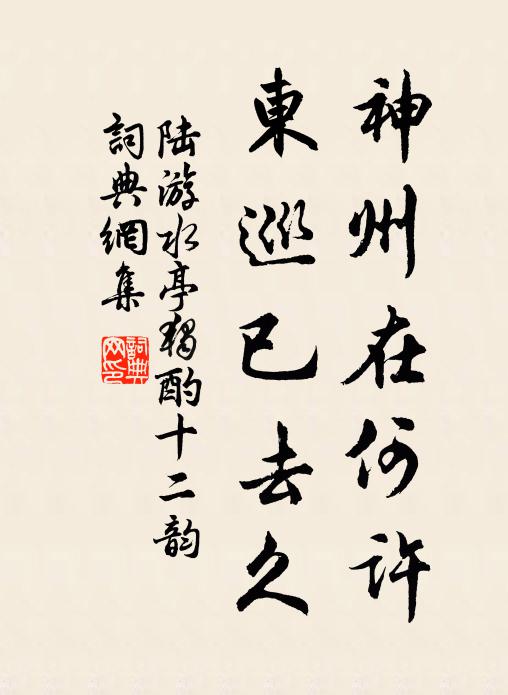 神州在何许
東巡已去久
陆游水亭獨酌十二韵
詞典網集
詞典網印